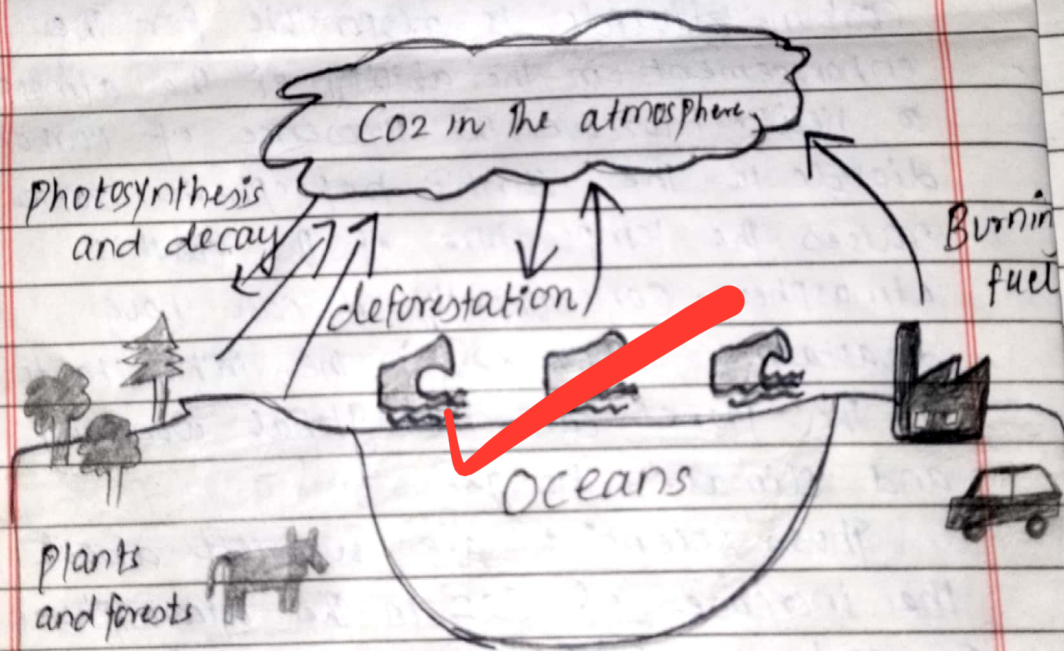 CO2 in the atmosphere
Photosynthesis
and decay
deforestation
Burnin
fuel
Oceans
Plants
and forests